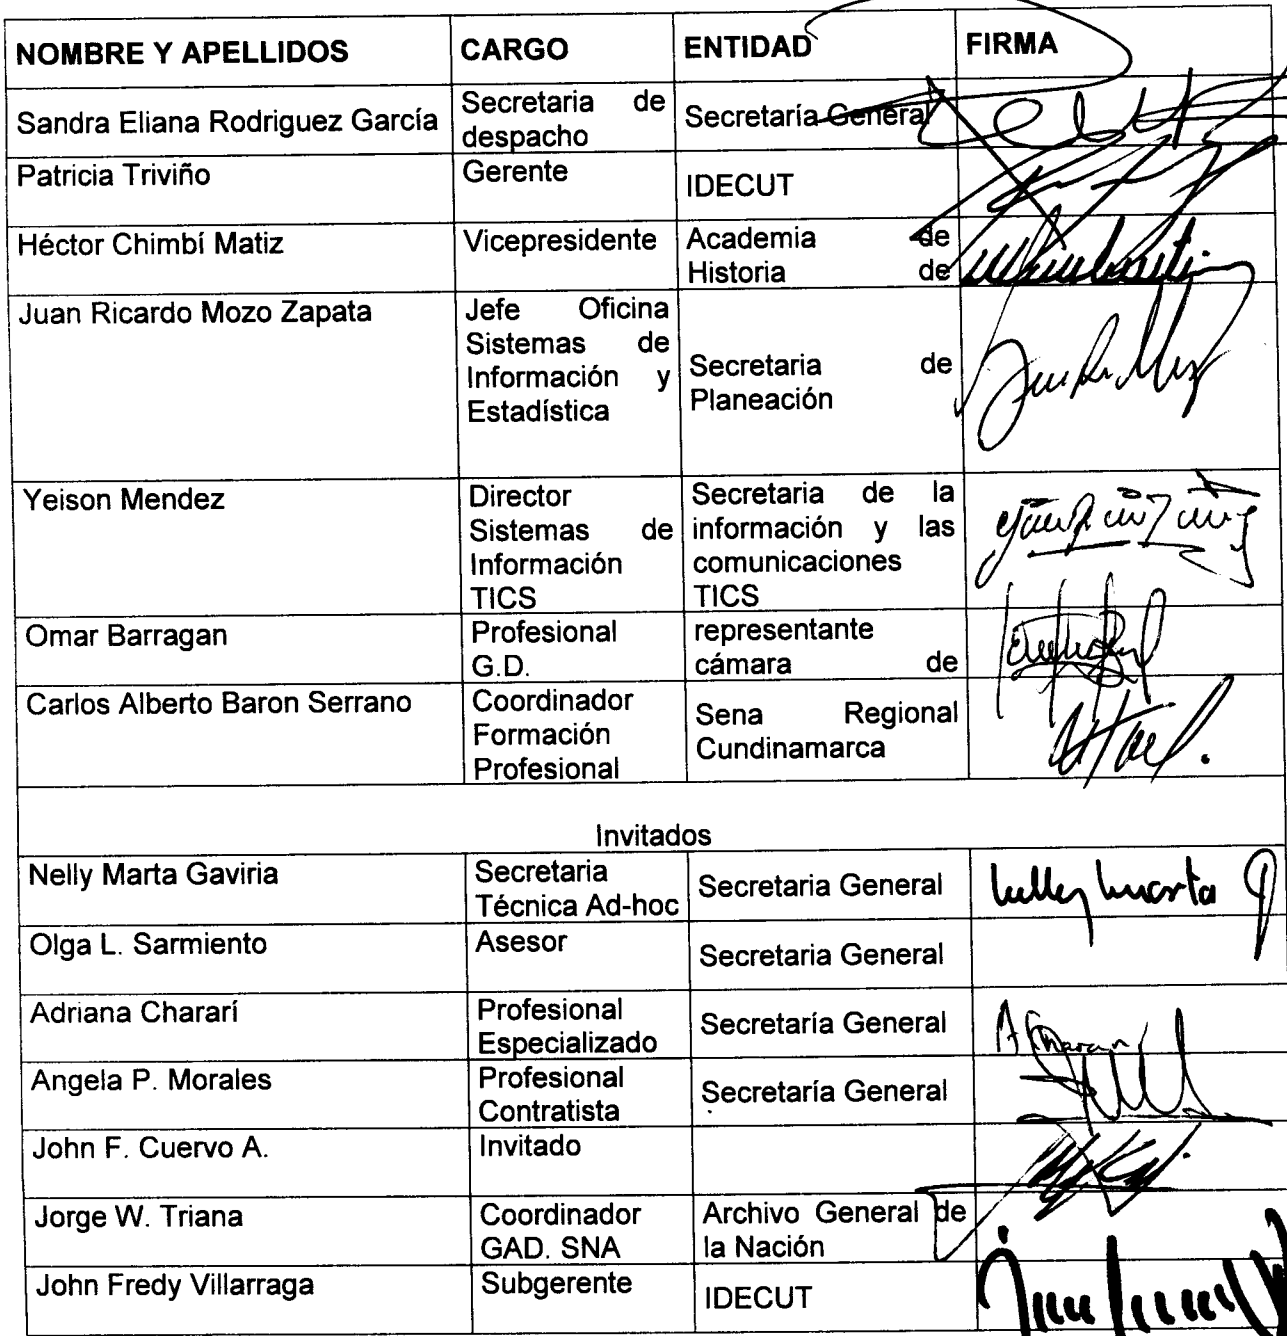 NOMBRE Y APELLIDOS CARGO ENTIDAD FIRMA
Sandra Eliana Rodriguez García Secretaria de despacho Secretaría General
Patricia Triviño Gerente IDECUT
Héctor Chimbí Matiz Vicepresidente Academia de Historia de
Juan Ricardo Mozo Zapata Jefe Oficina Sistemas de Información y Estadística Secretaria de Planeación
Yeison Mendez Director Sistemas de Información TICS Secretaria de la información y las comunicaciones TICS
Omar Barragan Profesional G.D. representante cámara de
Carlos Alberto Baron Serrano Coordinador Formación Profesional Sena Regional Cundinamarca
Invitados
Nelly Marta Gaviria Secretaria Técnica Ad-hoc Secretaria General Nelly Marta G
Olga L. Sarmiento Asesor Secretaria General
Adriana Chararí Profesional Especializado Secretaría General
Angela P. Morales Profesional Contratista Secretaría General
John F. Cuervo A. Invitado
Jorge W. Triana Coordinador GAD. SNA Archivo General de la Nación
John Fredy Villarraga Subgerente IDECUT